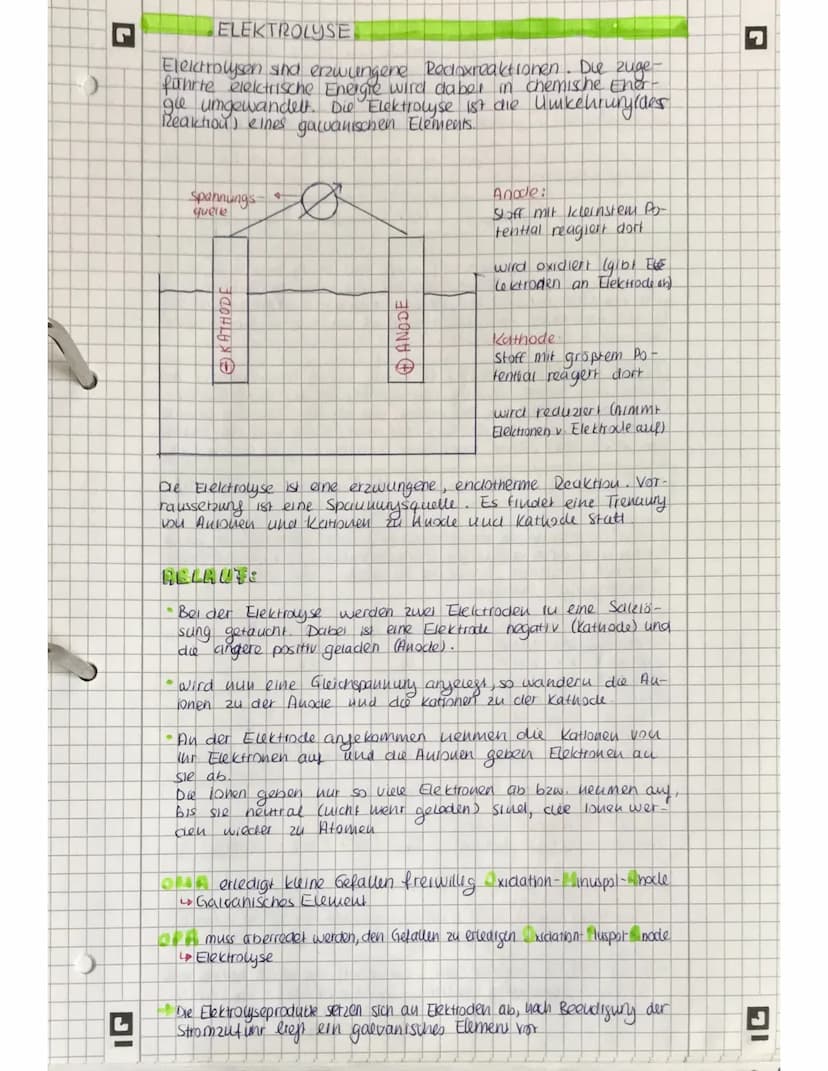 ELEKTROLYSE
Elektrolysen sind erzwungene Redoxreaktionen. Die zuge-
führte elektrische Energie wird dabei in chemische Ener-
gie umgewandelt. Die Elektrolyse ist die Umkehrung (des
Reaktion) eines galvanischen Elements.
Spannungs-
quelle
⊖ KATHODE
⊕ ANODE
Anode:
Stoff mit kleinstem Po-
tential reagiert dort
wird oxidiert (gibt Ele
lektroden an Elektrode ab)
Kathode
Stoff mit größtem Po-
tential reagert dort
wird reduziert (nimmt
Elektronen v. Elektrode auf)
Die Elektrolyse ist eine erzwungene, endotherme Reaktion. Vor-
raussetzung ist eine Spannungsquelle. Es findet eine Trennung
von Anionen und Kationen zu Anode und Kathode statt
ABLAUF:
• Bei der Elektrolyse werden zwei Elektroden in eine Salzlö-
sung getaucht. Dabei ist eine Elektrode negativ (Kathode) und
die angere positiv geladen (Anode).
• Wird nun eine Gleichspannung angelegt, so wandern die An-
ionen zu der Anode und die Kationen zu der Kathode
• An der Elektrode angekommen nehmen die Kationen von
ihr Elektronen auf und die Anionen geben Elektronen an
sie ab.
Die Ionen geben nur so viele Elektronen ab bzw. nehmen auf,
bis sie neutral (nicht mehr geladen) sind, die Ionen wer-
den wieder zu Atomen
OMA erledigt kleine Gefallen freiwillig Oxidation-Minuspol-Anode
↳ Galvanisches Element
OPA muss überredet werden, den Gefallen zu erledigen Oxidation-Pluspol-Anode
↳ Elektrolyse
→ Die Elektrolyseprodukte setzen sich an Elektroden ab, nach Beendigung der
Stromzufuhr liegt ein galvanisches Element vor